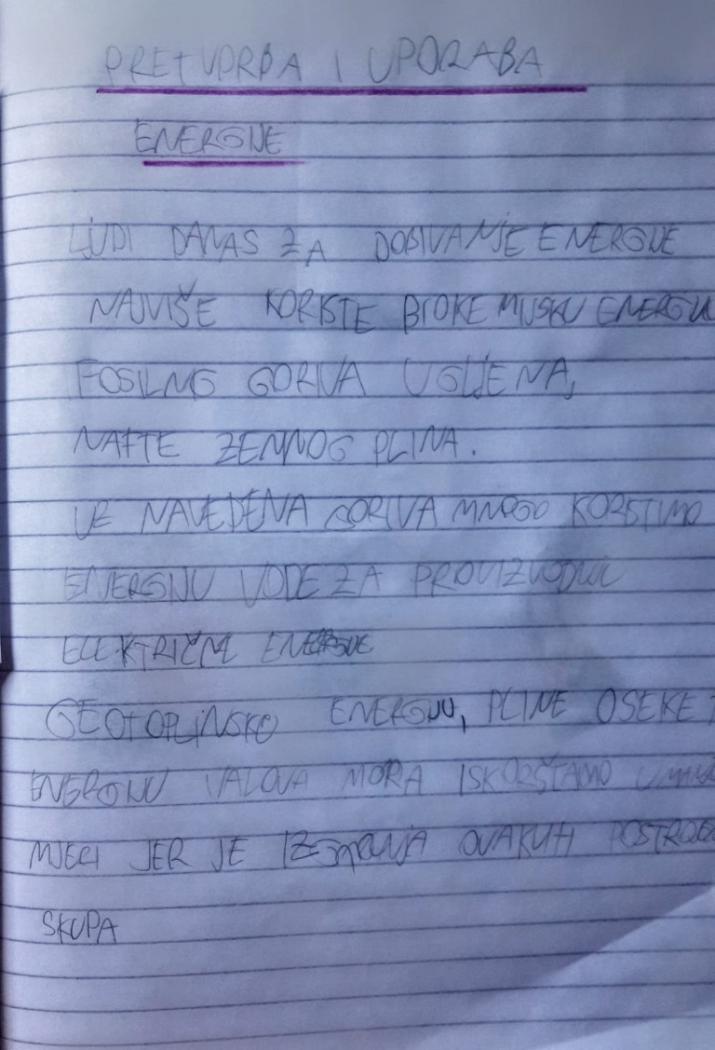 PRETVORBA I UPORABA
ENERGIJE
LJUDI DANAS ZA DOBIVANJE ENERGIJE
NAJVIŠE KORISTE BIOKEMIJSKU ENERGIJU
FOSILNIG GORIVA UGLJENA,
NAFTE ZEMNOG PLINA.
UZ NAVEDENA GORIVA MNOGO KORISTIMO
ENERGIJU VODE ZA PROIZVODNJU
ELEKTRIČNE ENERGIJE
GEOTOPLINSKO ENERGIJU, PLIME OSEKE I
ENERGIJU VALOVA MORA
MJERI JER JE IZGRADNJA OVAKVIH
SKUPA